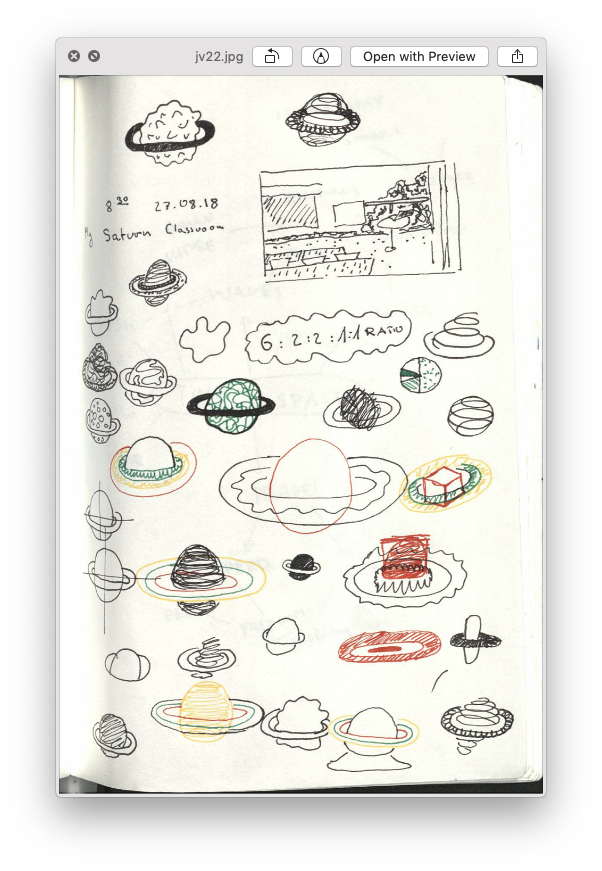 jv22.jpg
Open with Preview
8 30 27.08.18
My Saturn Classroom
6:2:2:1:1 RATIO